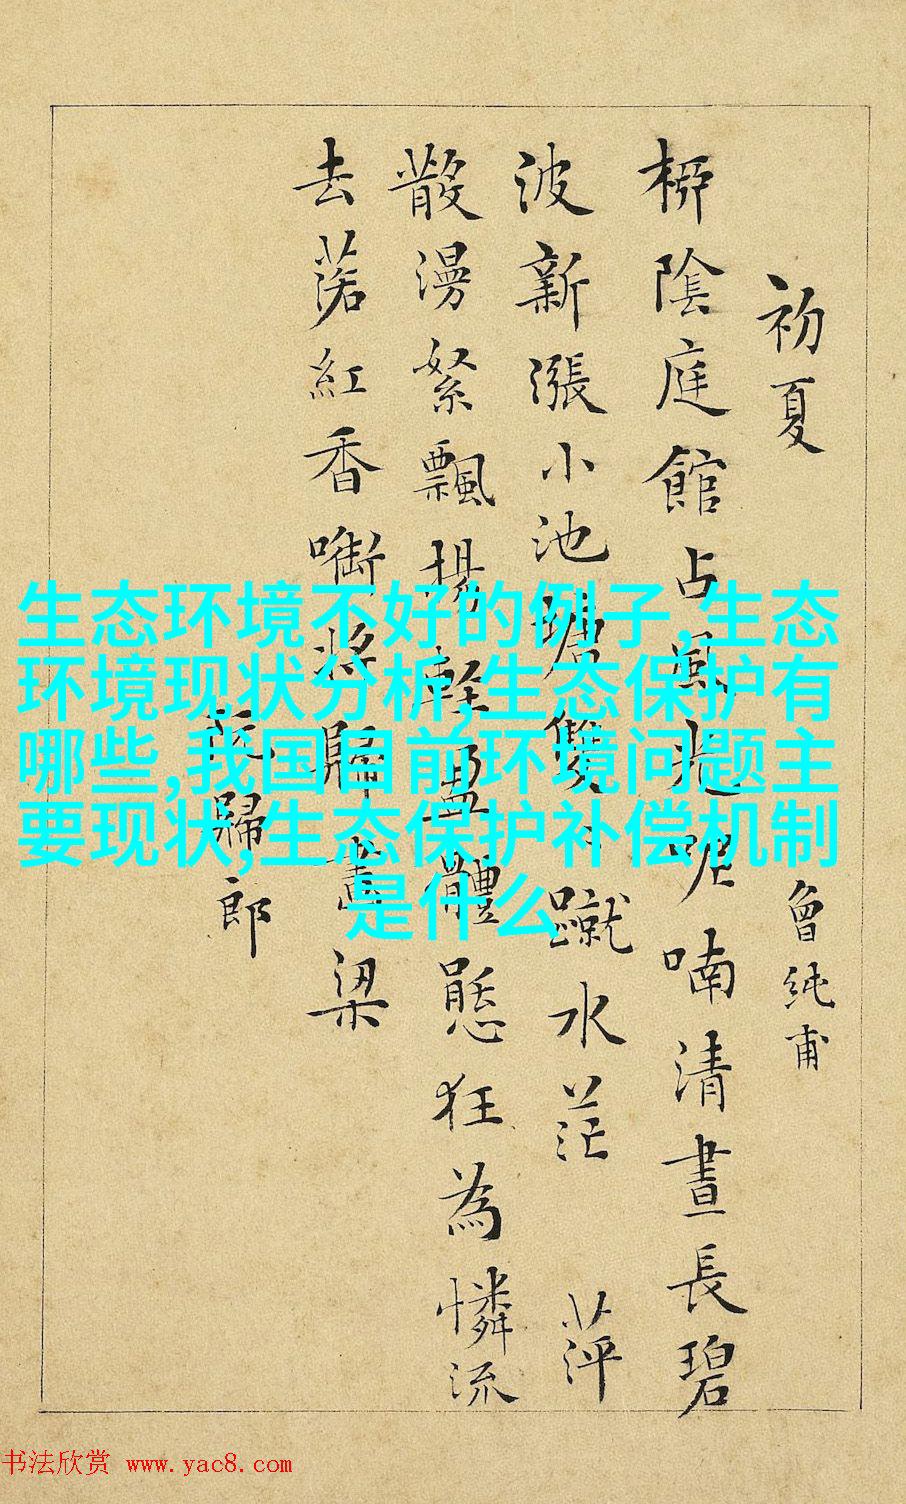 初夏 曾純甫
桺陰庭館占風光呢喃清晝長碧
波新漲小池塘雙〻蹴水茫 萍
散漫絮飄揚輕盈體態狂為憐流
去落紅香啣將歸畫梁
阮歸郎
生态环境不好的例子,生态
环境现状分析,生态保护有
哪些,我国目前环境问题主
要现状,生态保护补偿机制
是什么
书法欣赏 www.yac8.com